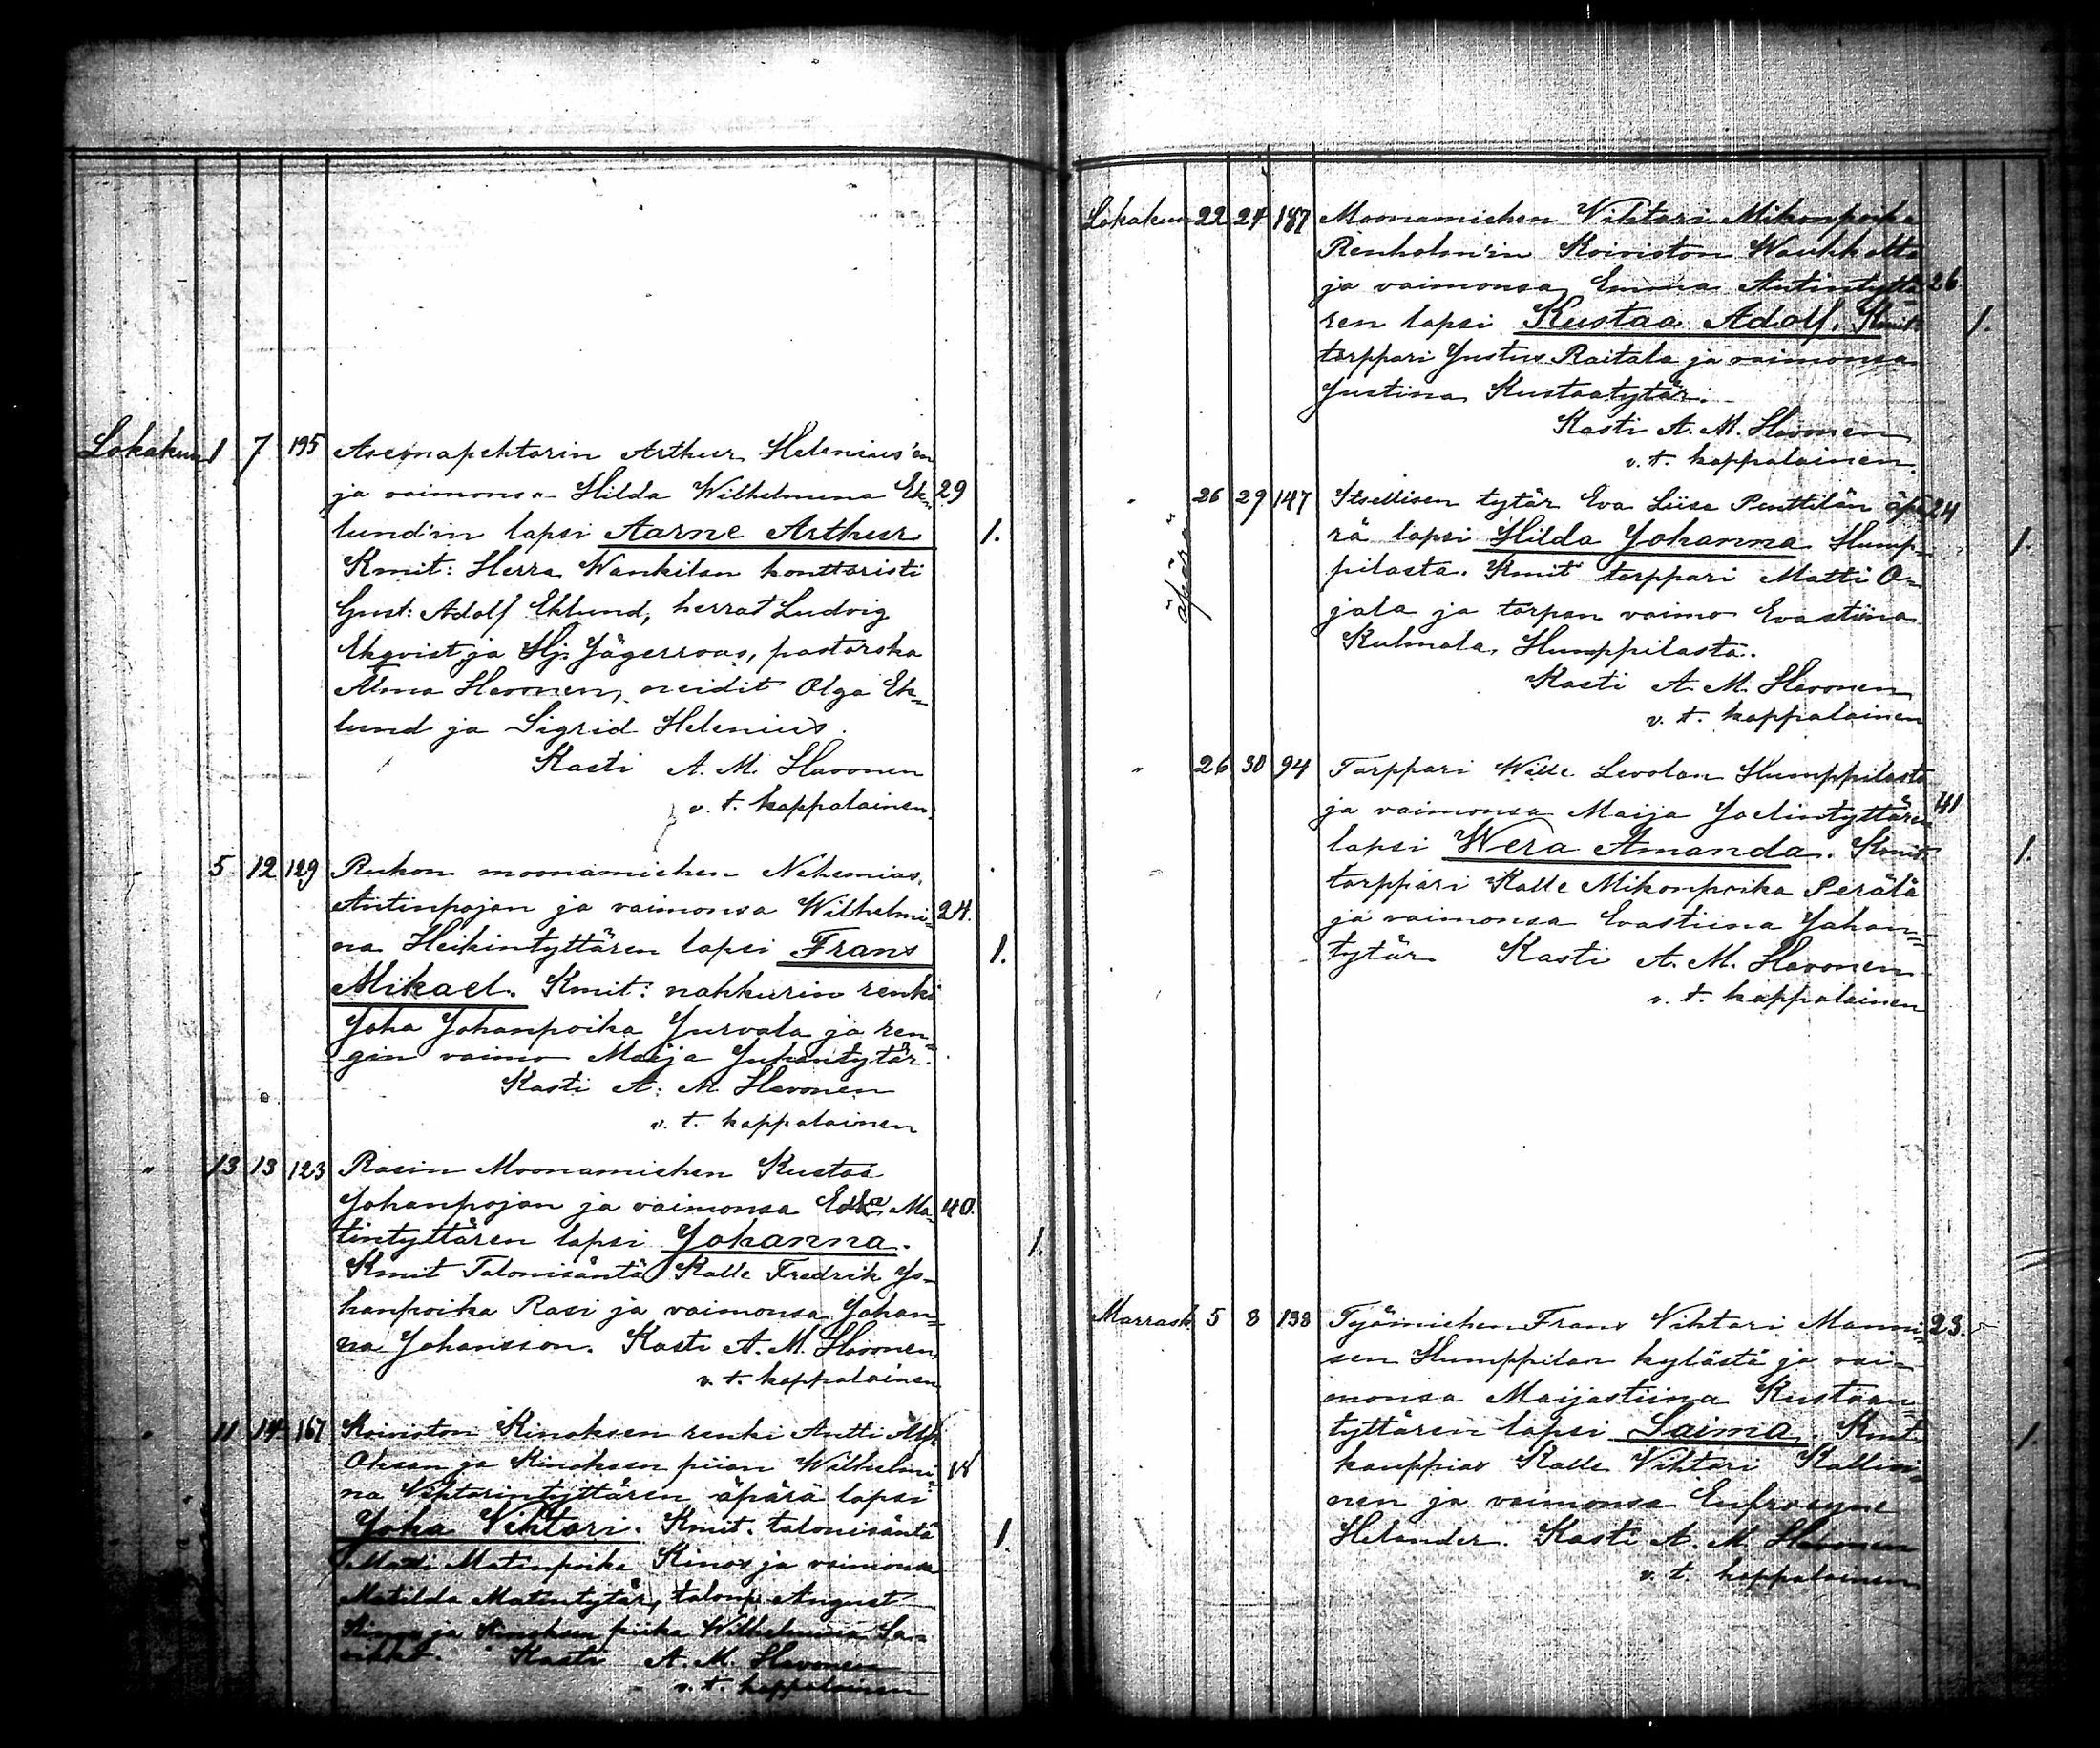 Lokakuu 1 7 195 Asemapehtorin Arthur Helenius'en
ja vaimonsa Hilda Wilhelmina Ek- 29
lund'in lapsi Aarne Arthur 1.
Kmit: Herra Wankilan konttoristi
Gust: Adolf Eklund, herrat Ludvig
Ekqvist ja Hj. Jägerroos, pastorska
Alma Havonen, neidit Olga Ek-
lund ja Sigrid Helenius.
Kasti A. M. Havonen
v. t. kappalainen
" 5 12 129 Rukon moonamiehen Nehemias
Antinpojan ja vaimonsa Wilhelmi- 24.
na Heikintyttären lapsi Frans 1.
Mikael. Kmit: nahkurin renki
Joha Johanpoika Jurvala ja ren-
gin vaimo Maija Juhantytär.
Kasti A. M. Havonen
v. t. kappalainen
" 13 13 123 Rasin Moonamiehen Kustaa
Johanpojan ja vaimonsa Ma- 40.
tintyttären lapsi Johanna. 1.
Kmit Talonisäntä Kalle Fredrik Jo-
hanpoika Rasi ja vaimonsa Johan-
na Johansson. Kasti A. M. Havonen
v. t. kappalainen
" 11 14 167 Koiviston Kinoksen renki Antti
Oksan ja Kinoksen piian Wilhelmi- 18
na Vihtorintyttären äpärä lapsi
Joha Vihtori. Kmit. talonisäntä 1.
Matti Matinpoika Kinos ja vaimonsa
Matilda Matintytär, talonp. August
Kinos ja Kinoksen piika Wilhelmina
Kasti A. M. Havonen
v. t. kappalainen
Lokakuu 22 27 187 Moonamiehen Vihtori Mikonpoika
Renholm'in Koiviston
ja vaimonsa Emma Antintyttä- 26.
ren lapsi Kustaa Adolf. Kmit: 1.
torppari Justus Raitala ja vaimonsa
Justina Kustaatytär.
Kasti A. M. Havonen
v. t. kappalainen.
" 26 29 147 Itsellisen tytär Eva Liisa Penttilän äpä- 24
äpärä
rä lapsi Hilda Johanna Hump- 1.
pilasta. Kmit torppari Matti O-
jala ja torpan vaimo Evastiina
Kulmala, Humppilasta.
Kasti A. M. Havonen
v. t. kappalainen
" 26 30 94 Torppari Wille Levolan Humppilasta
ja vaimonsa Maija Joelintyttären 41
lapsi Wera Amanda. Kmit. 1.
torppari Kalle Mikonpoika Perälä
ja vaimonsa Evastiina Johan-
tytär Kasti A. M. Havonen
v. t. kappalainen
Marrask. 5 8 138 Työmiehen Frans Vihtori Manni- 23.
sen Humppilan kylästä ja vai-
monsa Maijastiina Kustaan-
tyttären lapsi Saima. Kmit. 1.
kauppias Kalle Vihtori Kallioi-
nen ja vaimonsa Eufrosyne
Helander. Kasti A. M. Havonen
v. t. kappalainen